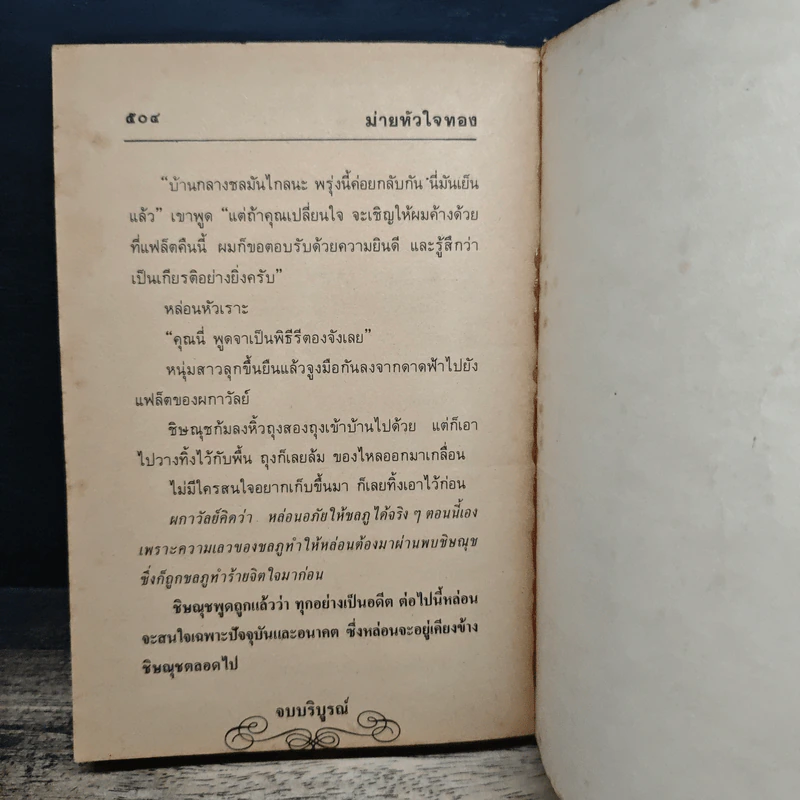 ๕๐๔ ม่ายหัวใจทอง
“บ้านกลางชลมันไกลนะ พรุ่งนี้ค่อยกลับกัน นี่มันเย็น
แล้ว” เขาพูด “แต่ถ้าคุณเปลี่ยนใจ จะเชิญให้ผมค้างด้วย
ที่แฟล็ตคืนนี้ ผมก็ขอตอบรับด้วยความยินดี และรู้สึกว่า
เป็นเกียรติอย่างยิ่งครับ”
หล่อนหัวเราะ
“คุณนี่ พูดจาเป็นพิธีรีตองจังเลย”
หนุ่มสาวลุกขึ้นยืนแล้วจูงมือกันลงจากดาดฟ้าไปยัง
แฟล็ตของผกาวัลย์
ชิษณุชก้มลงหิ้วถุงสองถุงเข้าบ้านไปด้วย แต่ก็เอา
ไปวางทิ้งไว้กับพื้น ถุงก็เลยล้ม ของไหลออกมาเกลื่อน
ไม่มีใครสนใจอยากเก็บขึ้นมา ก็เลยทิ้งเอาไว้ก่อน
ผกาวัลย์คิดว่า หล่อนอภัยให้ชลภูได้จริง ๆ ตอนนี้เอง
เพราะความเลวของชลภูทำให้หล่อนต้องมาผ่านพบชิษณุช
ซึ่งก็ถูกชลภูทำร้ายจิตใจมาก่อน
ชิษณุชพูดถูกแล้วว่า ทุกอย่างเป็นอดีต ต่อไปนี้หล่อน
จะสนใจเฉพาะปัจจุบันและอนาคต ซึ่งหล่อนจะอยู่เคียงข้าง
ชิษณุชตลอดไป
จบบริบูรณ์